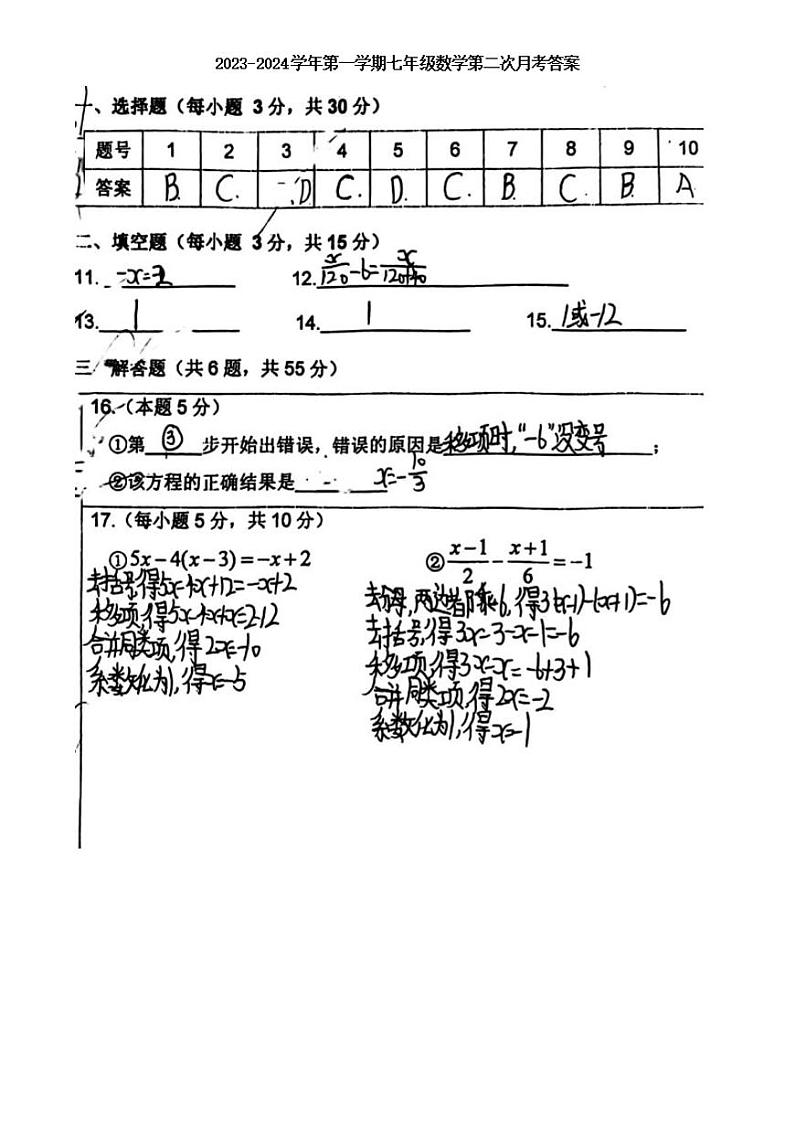 2023-2024学年第一学期七年级数学第二次月考答案
一、选择题（每小题 3分，共30分）
题号 1 2 3 4 5 6 7 8 9 10
答案 B. C. D C. D. C. B C. B. A
二、填空题（每小题 3分，共15分）
11. -x=2 12. x/120-6=x/(120+40)
13. 1 14. 1 15. 1或-12
三 解答题（共6题，共55分）
16.（本题5分）
①第 ③ 步开始出错误，错误的原因是移项时，“-6”没变号；
②该方程的正确结果是 x=-10/3
17.（每小题5分，共10分）
①5x-4(x-3)=-x+2
去括号，得5x-4x+12=-x+2
移项，得5x-4x+x=2-12
合并同类项，得2x=-10
系数化为1，得x=-5
②(x-1)/2-(x+1)/6=-1
去分母，两边都乘6，得3(x-1)-(x+1)=-6
去括号，得3x-3-x-1=-6
移项，得3x-x=-6+3+1
合并同类项，得2x=-2
系数化为1，得x=-1